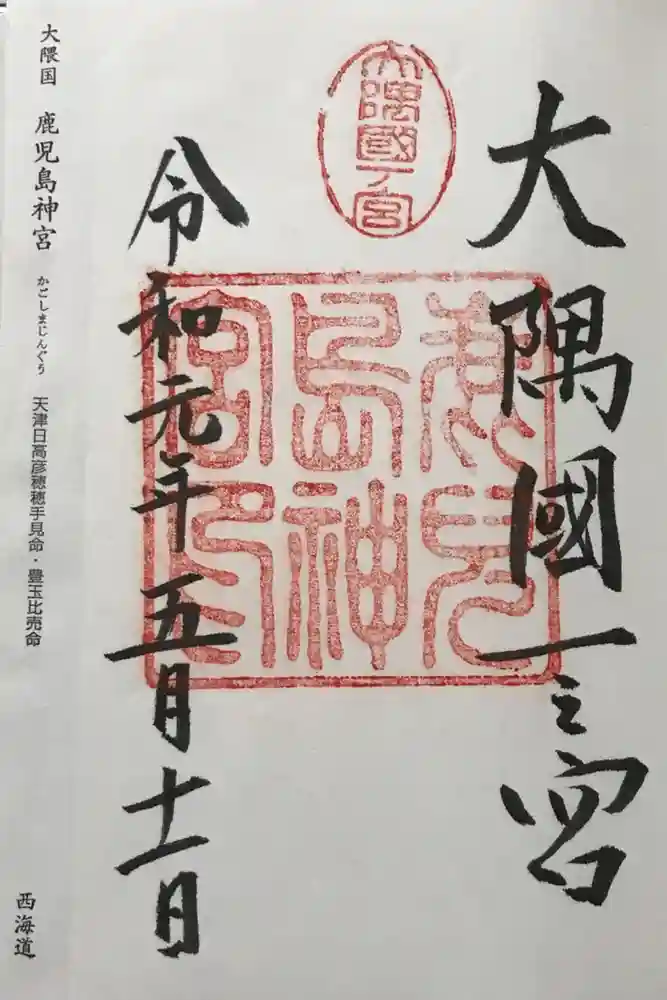 大隅國一之宮
大隅國一ノ宮
鹿兒島神宮印
令和元年五月十一日
大隈国 鹿児島神宮 かごしまじんぐう 天津日高彦穂穂手見命・豊玉比売命
西海道